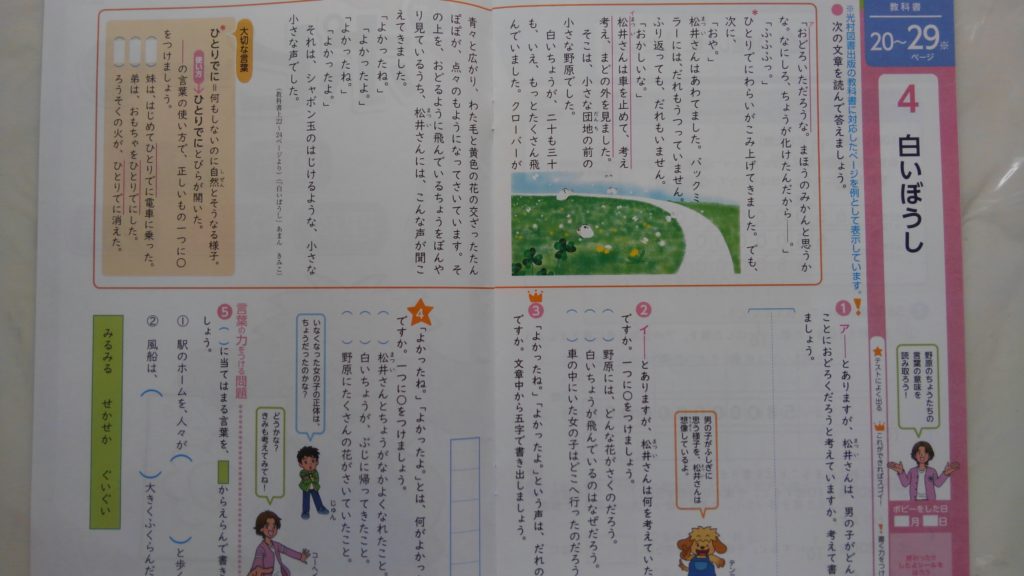 教科書
20〜29※
ページ
4 白いぼうし
野原のちょうたちの
言葉の意味を
読み取ろう！
★テストによく出る
これができればスゴイ！
ポピーをした日
月 日
※光村図書出版の教科書に対応したページを例として表示しています。
● 次の文章を読んで答えましょう。
「おどろいただろうな。まほうのみかんと思うか
な。なにしろ、ちょうが化けたんだから――。」
「ふふふっ。」
ひとりでにわらいがこみ上げてきました。でも、
次に、
「おや。」
松井さんはあわてました。バックミ
ラーには、だれもうつっていません。
ふり返っても、だれもいません。
「おかしいな。」
松井さんは車を止めて、考え
考え、まどの外を見ました。
そこは、小さな団地の前の
小さな野原でした。
白いちょうが、二十も三十
も、いえ、もっとたくさん飛
んでいました。クローバーが
青々と広がり、わた毛と黄色の花の交ざったたん
ぽぽが、点々のもようになってさいています。そ
の上を、おどるように飛んでいるちょうをぼんや
り見ているうち、松井さんには、こんな声が聞こ
えてきました。
「よかったね。」
「よかったよ。」
「よかったね。」
「よかったよ。」
それは、シャボン玉のはじけるような、小さな
小さな声でした。
（教科書上22〜24ページより）（「白いぼうし」あまん きみこ）
大切な言葉
ひとりでに＝何もしないのに自然とそうなる様子。
使い方 ひとりでにとびらが開いた。
の言葉の使い方で、正しいもの一つに○
をつけましょう。
妹は、はじめてひとりでに電車に乗った。
弟は、おもちゃをひとりでにした。
ろうそくの火が、ひとりでに消えた。
1 ア――とありますが、松井さんは、男の子がどん
なことにおどろくだろうと考えていますか。考えて書
ましょう。
2 イ――とありますが、松井さんは何を考えていた
ですか。一つに○をつけましょう。
（ ）野原には、どんな花がさくのだろう。
（ ）白いちょうが飛んでいるのはなぜだろう。
（ ）車の中にいた女の子はどこへ行ったのだろう
男の子がふしぎに
思う様子を、松井さんは
想像しているよ。
3 「よかったね。」「よかったよ。」という声は、だれの
ですか。文章中から五字で書き出しましょう。
4 「よかったね。」「よかったよ。」とは、何がよかっ
ですか。一つに○をつけましょう。
（ ）松井さんとちょうがなかよくなれたこと。
（ ）白いちょうが、ぶじに帰ってきたこと。
（ ）野原にたくさんの花がさいていたこと。
いなくなった女の子の正体は、
ちょうだったのかな？
じゅん
どうかな？
きみも考えてみてね！
言葉の力をつける問題
5 （ ）に当てはまる言葉を、 からえらんで書き
しょう。
① 駅のホームを、人々が（ ）と歩く
② 風船は、（ ）大きくふくらんだ
みるみる せかせか ぐいぐい